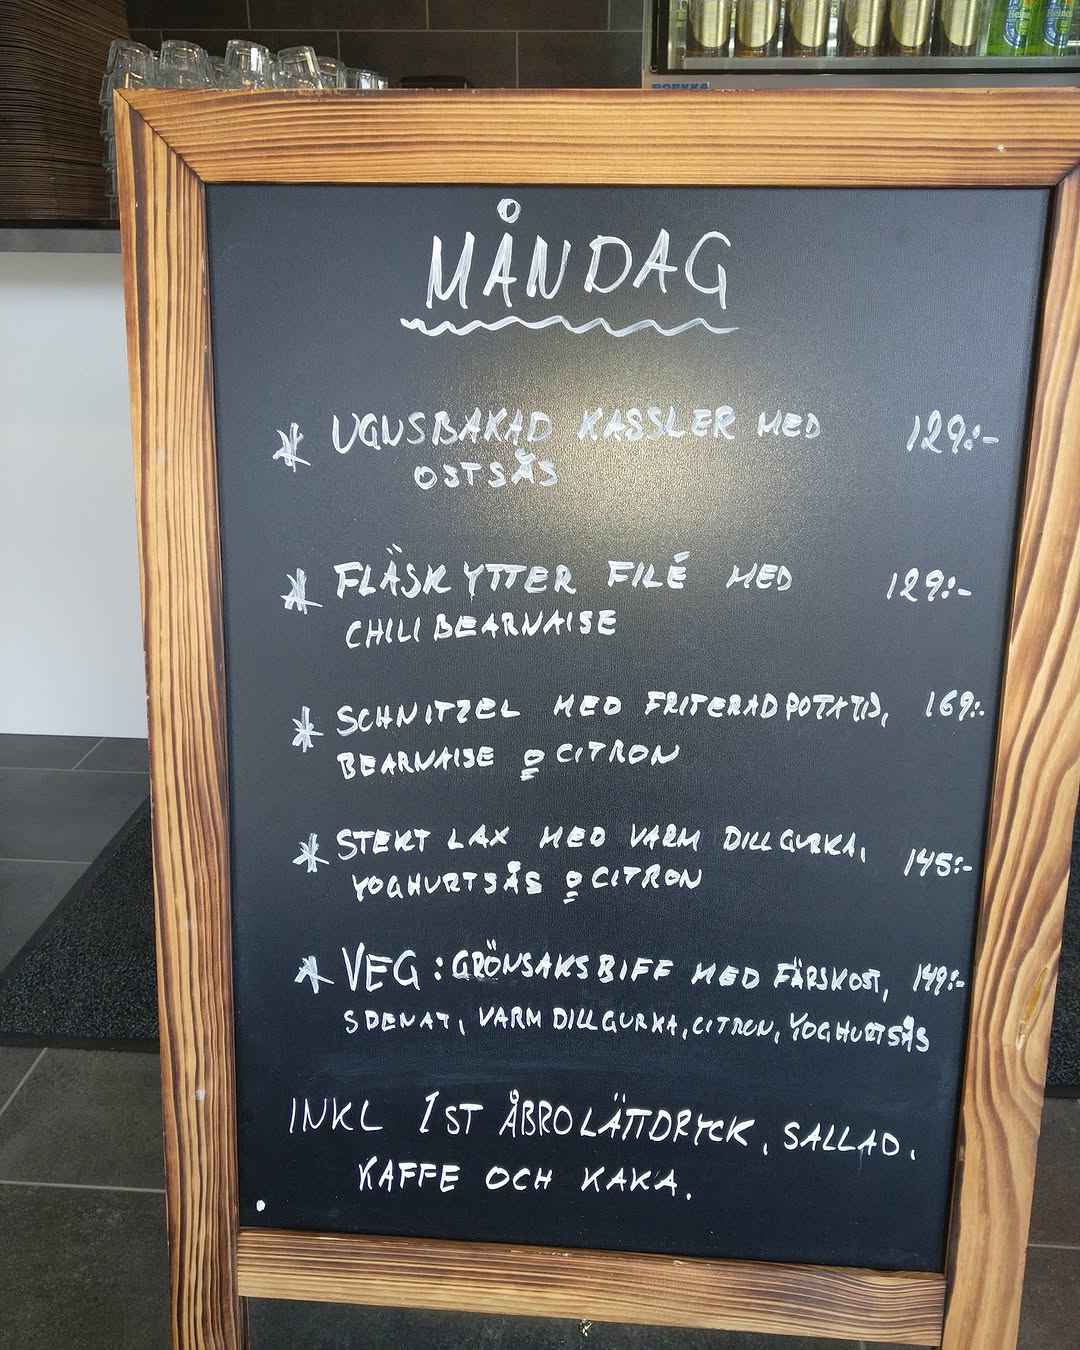 BORKKA
Heineken
MÅNDAG
* UGNSBAKAD KASSLER MED 129:-
OSTSÅS
* FLÄSKYTTER FILÉ MED 129:-
CHILIBEARNAISE
* SCHNITZEL MED FRITERADPOTATIS, 169:-
BEARNAISE o CITRON
* STEKT LAX MED VARM DILLGURKA, 145:-
YOGHURTSÅS o CITRON
* VEG: GRÖNSAKSBIFF MED FÄRSKOST, 149:-
SDENAT, VARM DILLGURKA, CITRON, YOGHURTSÅS
INKL 1ST ÅBRO LÄTTDRYCK, SALLAD,
KAFFE OCH KAKA.